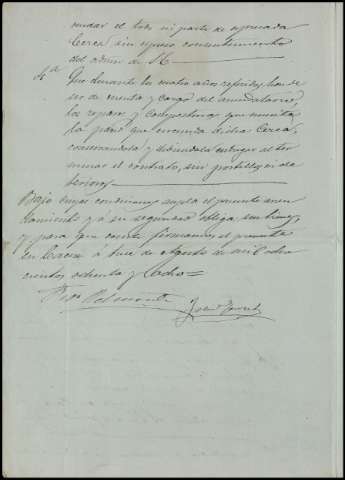 rendar el todo ni parte de expresada
Cerca sin expreso consentimiento
del admor de S. E.
4ª Que durante los cuatro años referidos, han de
ser de cuenta y cargo del arrendatario,
los reparos y composturas que necesita
la pared que circunda dicha Cerca,
conservandola y debiendola entregar al ter
minar el contrato, sin portillos ni de
terioros
Bajo cuyas condiciones acepta el presente arren
damiento y á su seguridad obliga sus bienes,
y para que conste firmamos el presente
en Cáceres á trece de Agosto de mil ocho
cientos ochenta y ocho =